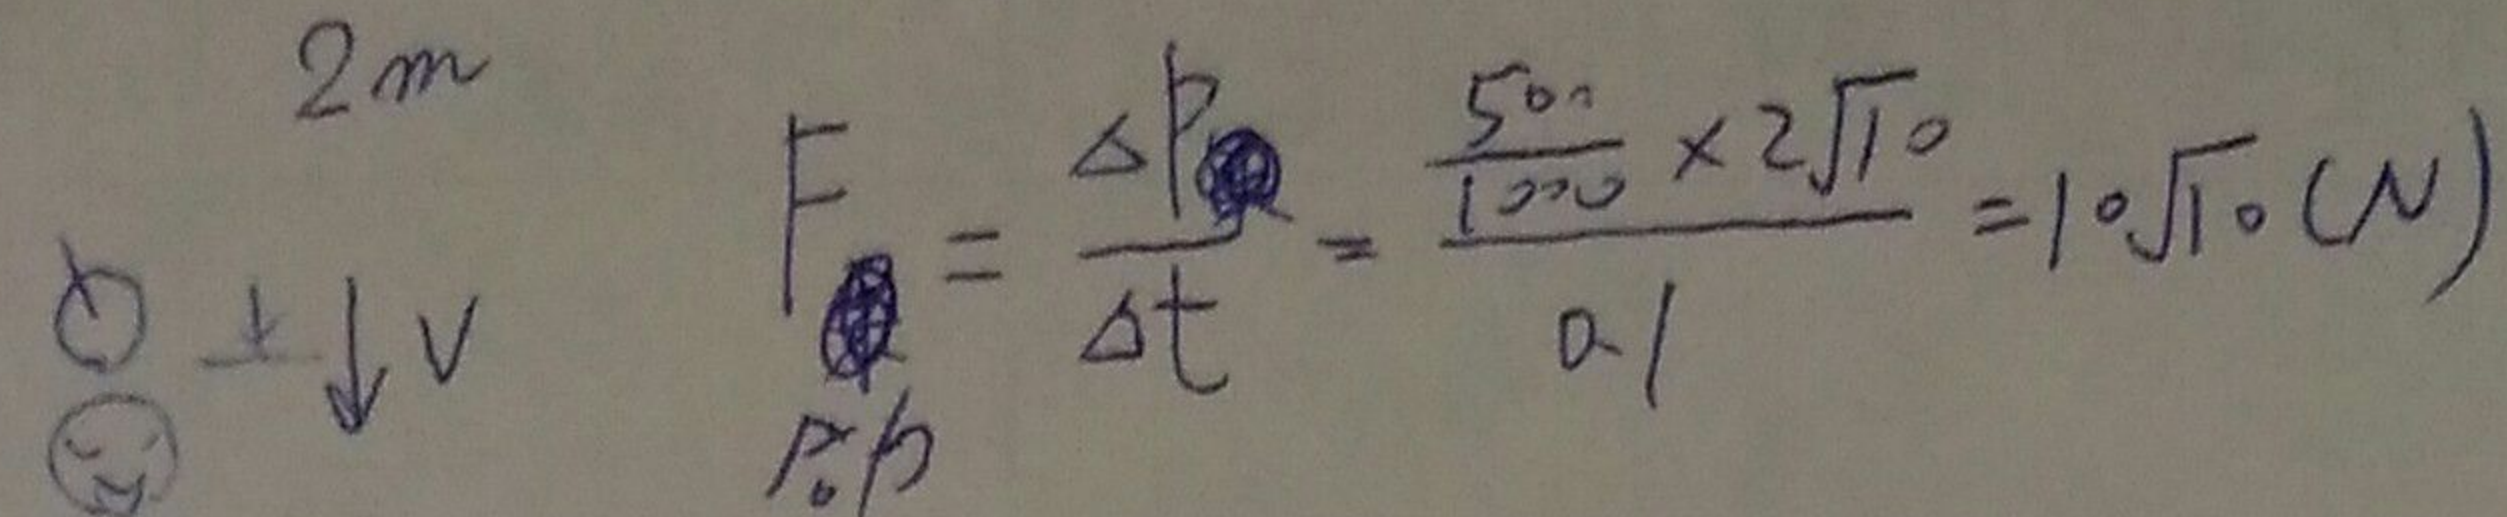 2m
F = ΔP/Δt = (500/1000 × 2√10)/0.1 = 10√10 (N)
↓ V